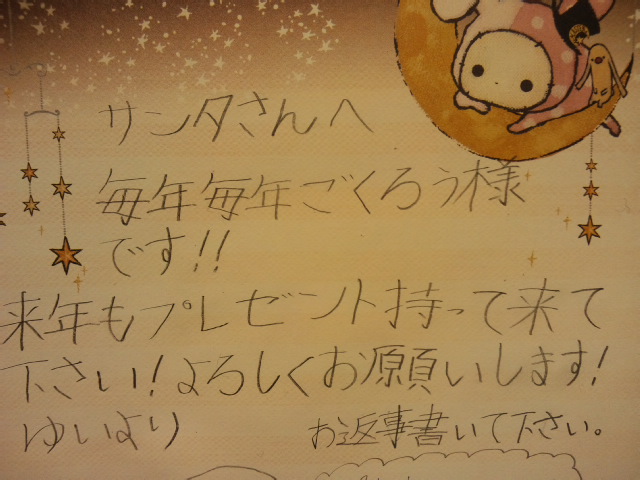 サンタさんへ
毎年毎年ごくろう様
です!!
来年もプレゼント持って来て
下さい!よろしくお願いします!
ゆいより お返事書いて下さい。